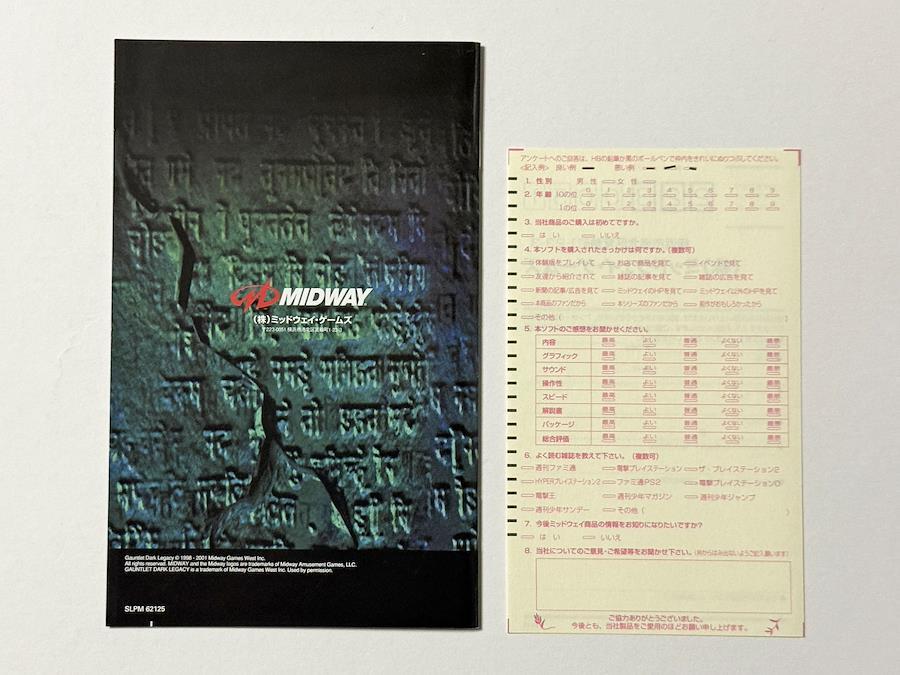 MIDWAY
(株)ミッドウェイ・ゲームズ
Gauntlet Dark Legacy © 1998 - 2001 Midway Games West Inc.
All rights reserved. MIDWAY and the Midway logos are trademarks of Midway Amusement Games, LLC.
GAUNTLET DARK LEGACY is a trademark of Midway Games West Inc. Used by permission.
SLPM 62125
アンケートへのご回答は、HBの鉛筆か黒のボールペンで枠内をきれいにぬりつぶしてください。
<記入例> 良い例 悪い例
1. 性別 男性 女性
2. 年齢 10の位 0 1 2 3 4 5 6 7 8 9
1の位 0 1 2 3 4 5 6 7 8 9
3. 当社商品のご購入は初めてですか。
はい いいえ
4. 本ソフトを購入されたきっかけは何ですか。(複数可)
体験版をプレイして お店で商品を見て イベントで見て
友達から紹介されて 雑誌の記事を見て 雑誌の広告を見て
新聞の記事/広告を見て ミッドウェイのHPを見て ミッドウェイ以外のHPを見て
本商品のファンだから 本シリーズのファンだから 前作がおもしろかったから
その他(
5. 本ソフトのご感想をお聞かせください。
内容 最高 よい 普通 よくない 最悪
グラフィック 最高 よい 普通 よくない 最悪
サウンド 最高 よい 普通 よくない 最悪
操作性 最高 よい 普通 よくない 最悪
スピード 最高 よい 普通 よくない 最悪
解説書 最高 よい 普通 よくない 最悪
パッケージ 最高 よい 普通 よくない 最悪
総合評価 最高 よい 普通 よくない 最悪
6. よく読む雑誌を教えて下さい。(複数可)
週刊ファミ通 電撃プレイステーション ザ・プレイステーション2
HYPERプレイステーション2 ファミ通PS2 電撃プレイステーションD
電撃王 週刊少年マガジン 週刊少年ジャンプ
週刊少年サンデー その他( )
7. 今後ミッドウェイ商品の情報をお知りになりたいですか?
はい いいえ
8. 当社についてのご意見・ご希望等をお聞かせ下さい。(枠からはみ出ないようご記入願います)
ご協力ありがとうございました。
今後とも、当社製品をご愛用のほどお願い申し上げます。